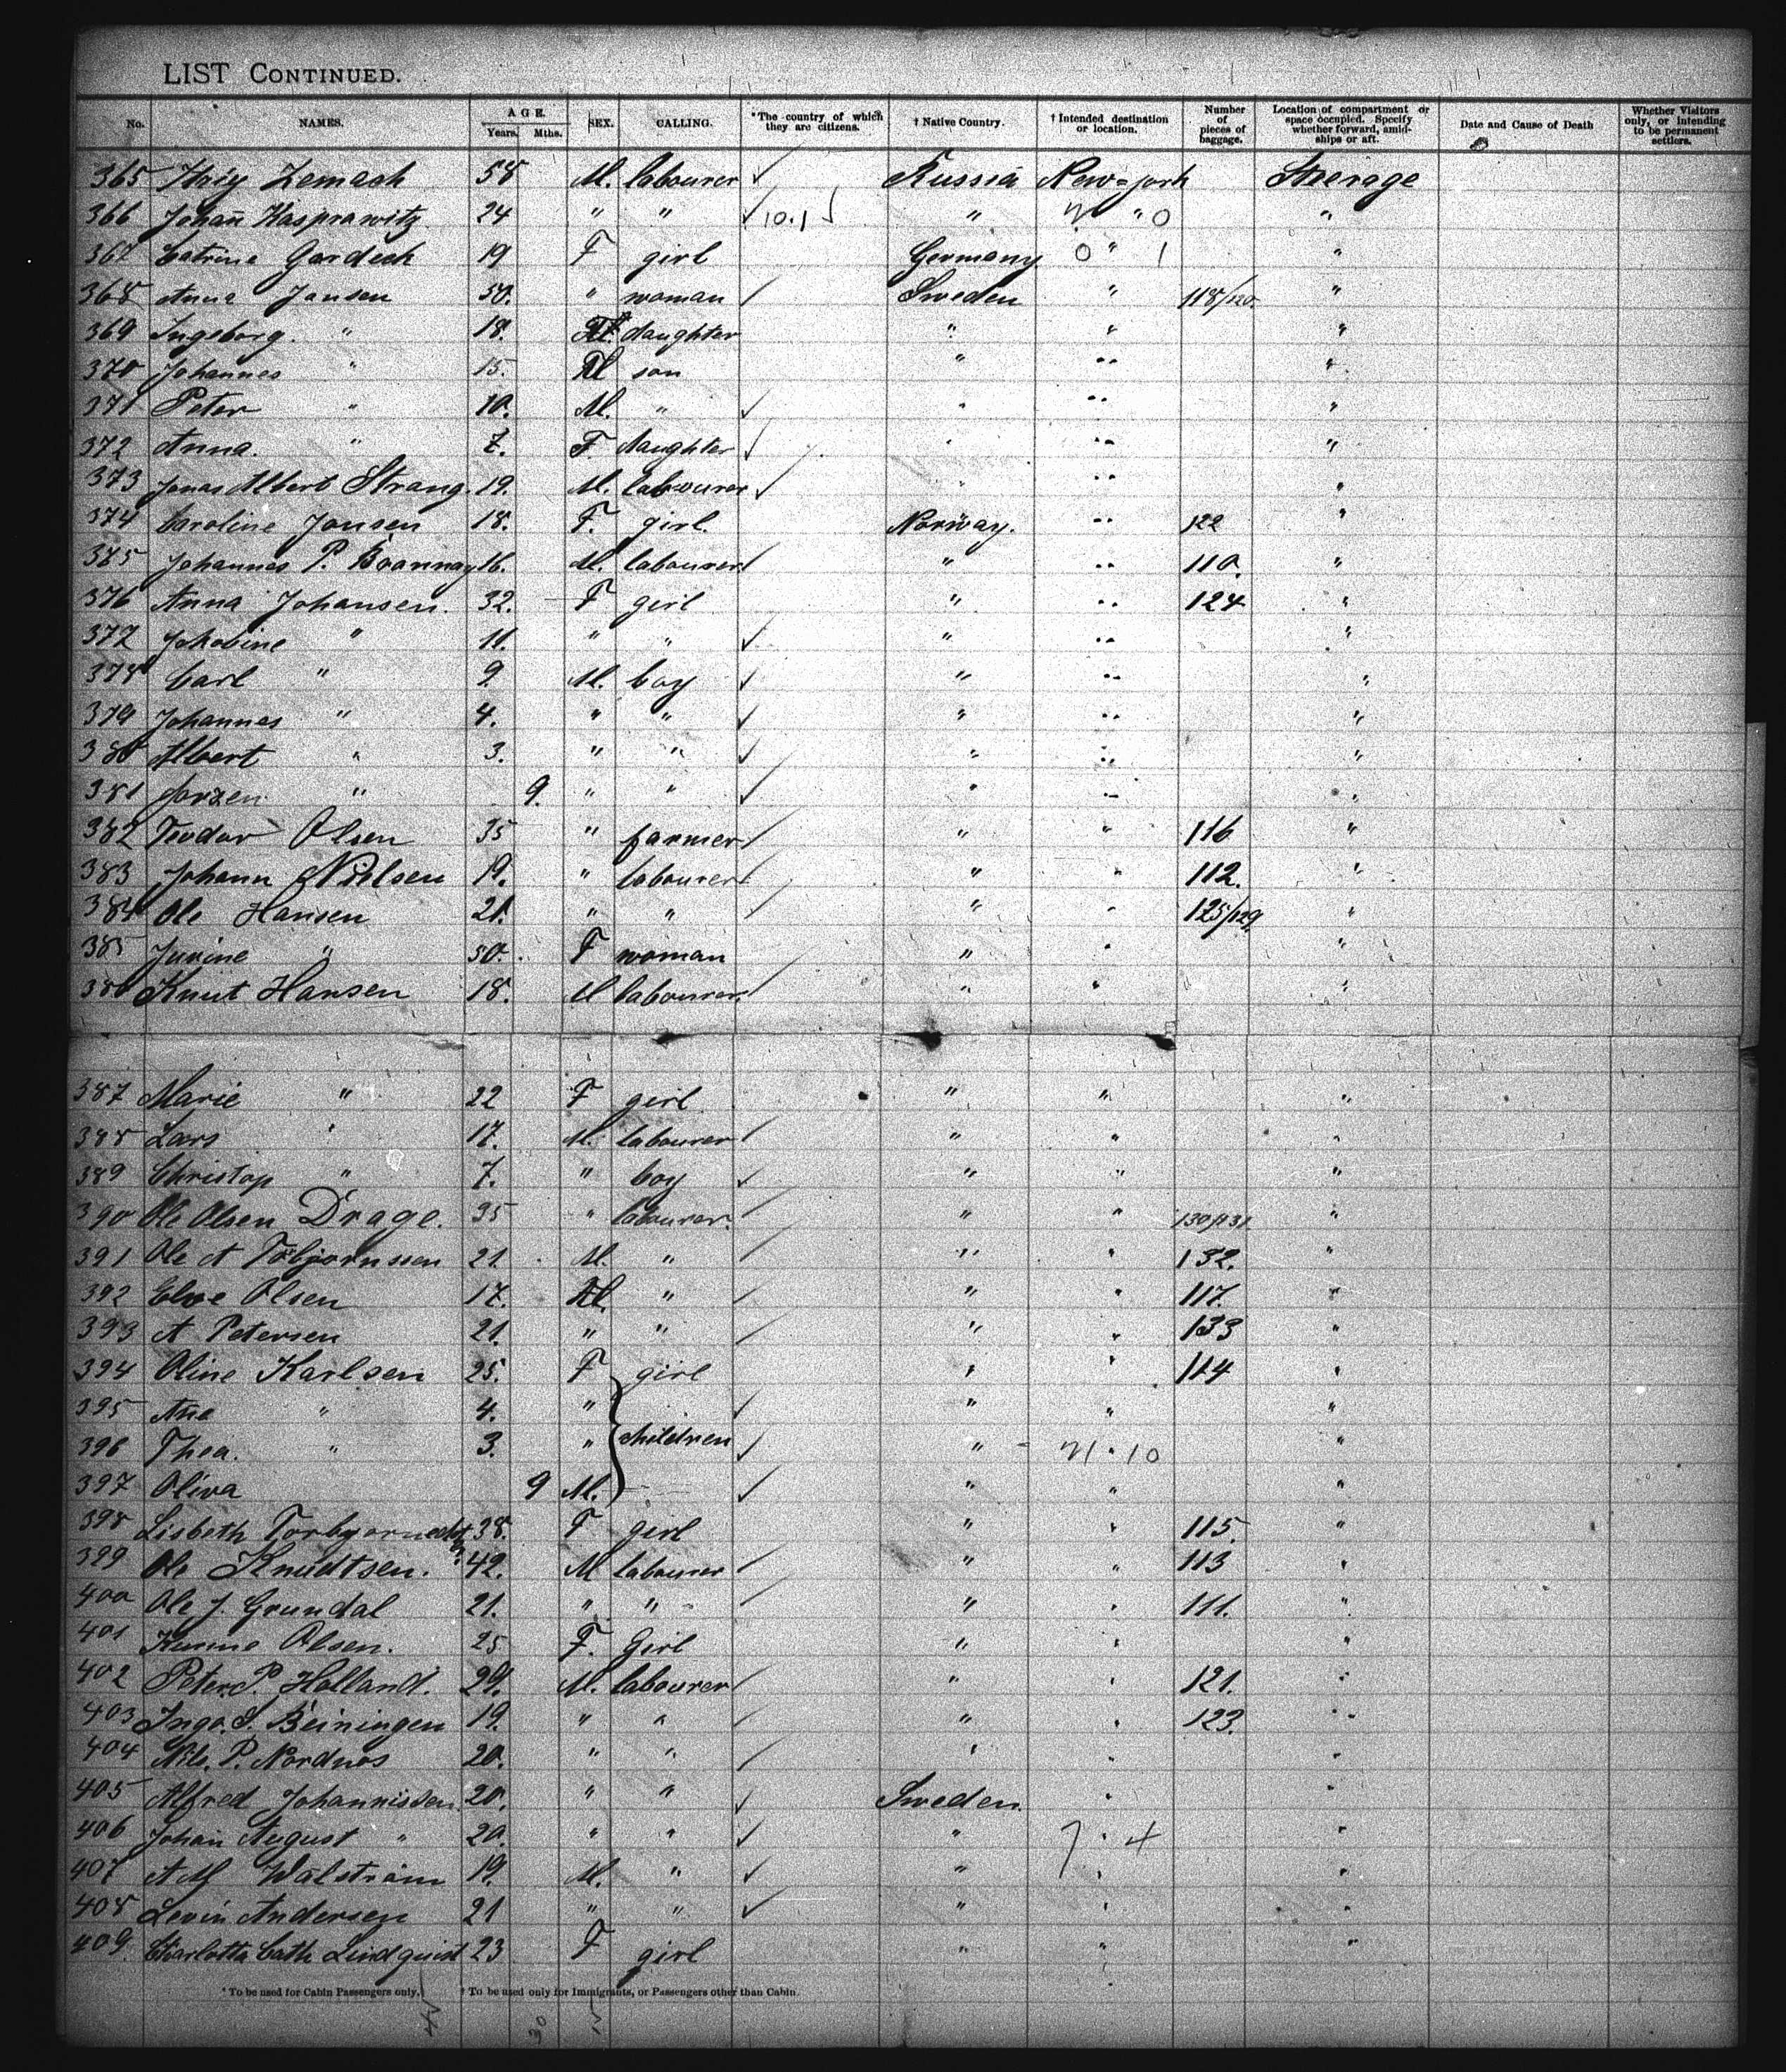 LIST CONTINUED.
No. NAMES. AGE. Years. Mths. SEX. CALLING. *The country of which they are citizens. † Native Country. † Intended destination or location. Number of pieces of baggage. Location of compartment or space occupied. Specify whether forward, amidships or aft. Date and Cause of Death Whether Visitors only, or intending to be permanent settlers.
365 Zemach 58 M. labourer ✓ Russia New=york Steerage
366 Johan̄ Kasprawitz 24 " " ✓ 10.1 " " 0 "
367 Catrine Gardech 19 F girl Germany 0 " 1 "
368 Anna Jansen 50. " woman / Sweden " 118/120 "
369 Ingeborg. " 18. F. daughter " " "
370 Johannes " 15. M son " " "
371 Peter " 10. M. " ✓ " " "
372 Anna. " 7. F. daughter ✓ " " "
373 Jonas Albert Strang. 19. M. labourer ✓ " " "
374 Caroline Jansen 18. F. girl. Norway. " 122 "
375 Johannes P. 16. M. labourer / " " 110. "
376 Anna Johansen. 32. F girl " " 124 "
377 " 11. " " ✓ " " "
378 Carl " 9. M. boy ✓ " " "
379 Johannes " 4. " " ✓ " " "
380 Albert " 3. " " ✓ " " "
381 " 9. " " ✓ " " "
382 Teodor Olsen 35 " farmer / " " 116 "
383 Johann Nielsen 19. " labourer / " " 112. "
384 Ole Hansen 21. " " / " " 125/129. "
385 " 50. F woman " " "
386 Knut Hansen 18. M labourer / " " "
387 Marie " 22 F girl " " "
388 Lars " 17. M. labourer / " " "
389 Christop " 7. " boy ✓ " " "
390 Ole Olsen Drage. 35 " labourer. / " " 130/131 "
391 Ole A Torbjornssen 21. M. " / " " 132. "
392 Olsen 17. M. " / " " 117. "
393 A Petersen 21. " " / " " 133 "
394 Oline Karlsen 25. F girl " " 114 "
395 Ane " 4. " ✓ " " "
396 Thea. " 3. " children ✓ " 10 "
397 Oliva 9 M. ✓ " " "
398 Lisbeth 38. F girl " " 115. "
399 Ole Knudtsen. 42. M labourer / " " 113 "
400 Ole J. Grundal 21. " " / " " 111. "
401 Olsen. 25 F. Girl " " "
402 Peter P. Holland. 29. M. labourer / " " 121. "
403 Inga. S. Beiningen 19. " " / " " 123. "
404 Nils. P. Nordnos 20. " " / " " "
405 Alfred Johannissen 20. " " ✓ Sweden. " "
406 Johan̄ August " 20. " " ✓ " 7 . 4 "
407 Walstrom 19. M. " ✓ " " "
408 Levin Andersen 21 " " ✓ " " "
409. Charlotta Cath Lindquist 23 F girl " " "
* To be used for Cabin Passengers only. † To be used only for Immigrants, or Passengers other than Cabin.
30